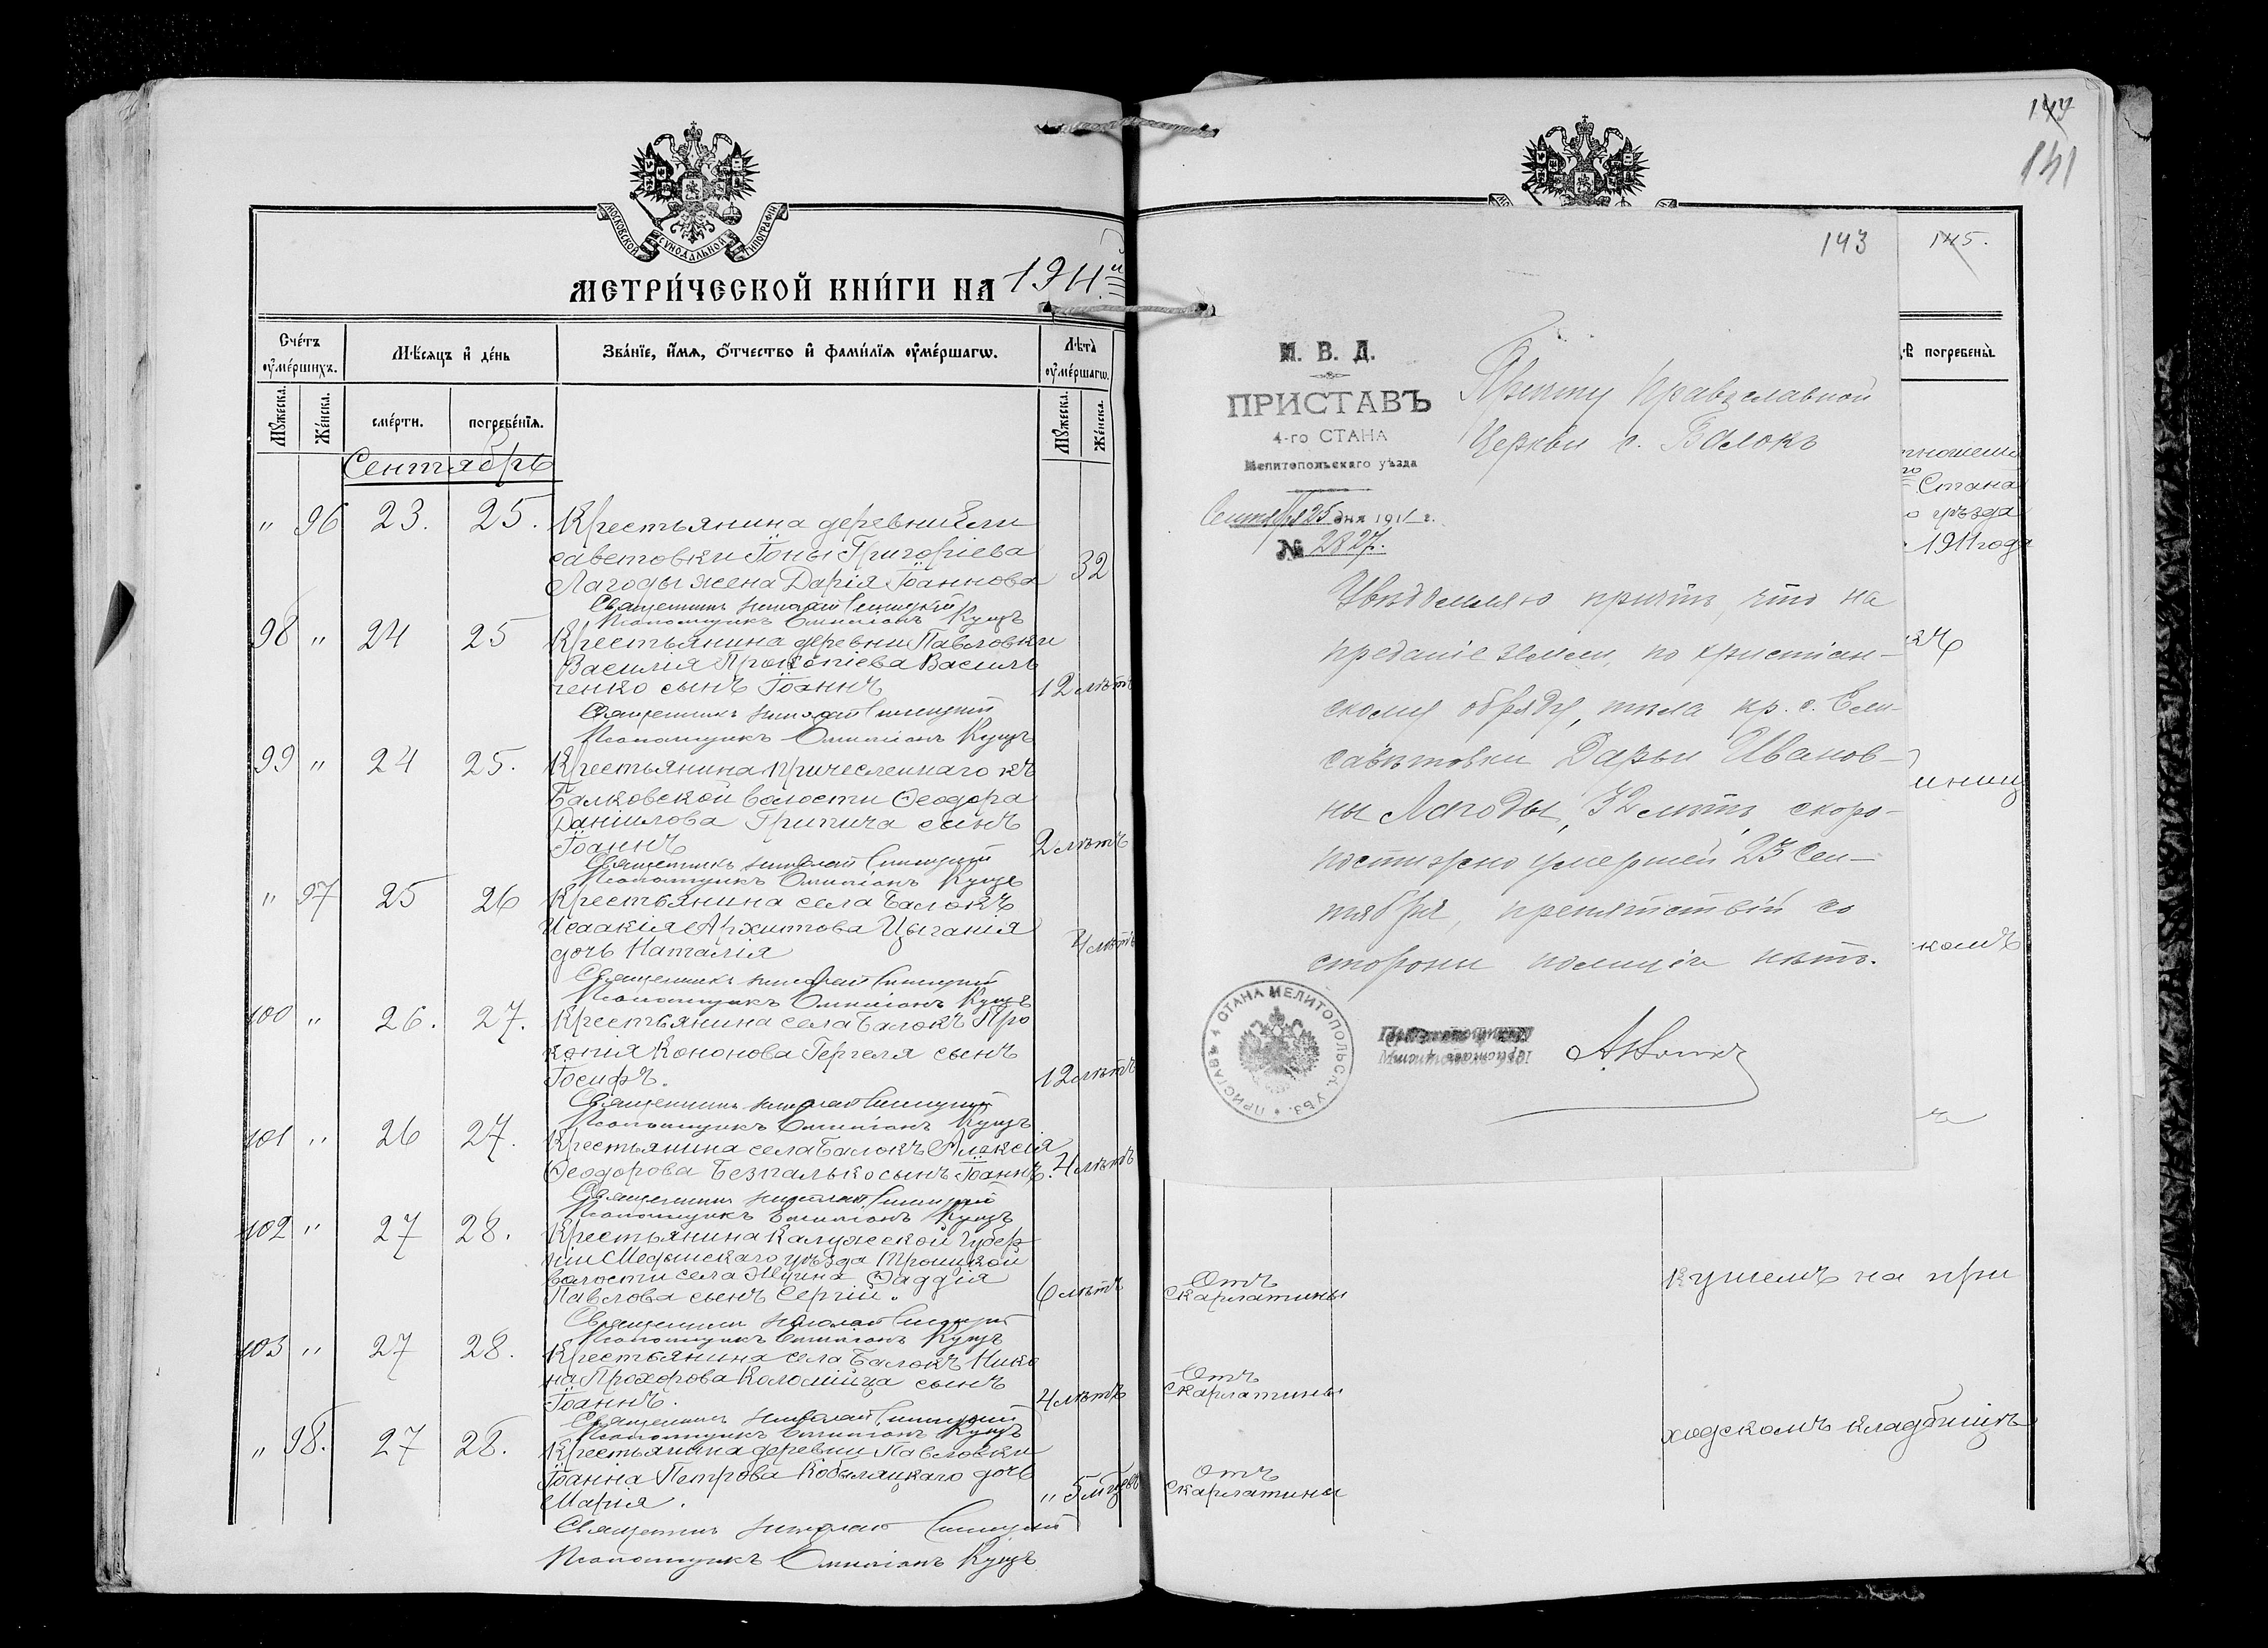 МОСКОВСКОЙ СѴНОДАЛЬНОЙ ТИПОГРАФІИ
МЕТРИ́ЧЕСКОЙ КНИ́ГИ НА 1911 й
Сче́тъ оу҆ме́ршихъ.
Мѣ́сяцъ и҆ де́нь
Зва́нїе, и҆́мя, о҆́тчество и҆ фами́лїя оу҆ме́ршагѡ.
Лѣ́та оу҆ме́ршагѡ.
Мꙋ́жеска.
Же́нска.
сме́рти.
погребе́нїя.
Мꙋ́жеска.
Же́нска.
Сентябрь
" 96 23. 25. Крестьянина деревни Ели
саветовки Іоны Григоріева
Лагоды жена Дарія Іоаннова 32
Священникъ Николай Синицкій
Псаломщикъ Емиліанъ Кущъ
98 " 24 25 Крестьянина деревни Павловки
Василія Прокопіева Василь
ченко сынъ Іоаннъ 12 лѣтъ
Священникъ Николай Синицкій
Псаломщикъ Емиліанъ Кущъ
99 " 24 25. Крестьянина причисленнаго къ
Балковской волости Ѳеодора
Даніилова Грипича сынъ
Іоаннъ 2 лѣтъ
Священникъ Николай Синицкій
Псаломщикъ Емиліанъ Кущъ
" 97 25 26 Крестьянина села Балокъ
Исаакія Архипова Цыганія
дочь Наталія 4 лѣтъ
Священникъ Николай Синицкій
Псаломщикъ Емиліанъ Кущъ
100 " 26. 27. Крестьянина села Балокъ Про
копія Кононова Гергеля сынъ
Іосифъ. 12 лѣтъ
Священникъ Николай Синицкій
Псаломщикъ Емиліанъ Кущъ
101 " 26 27. Крестьянина села Балокъ Алексія
Ѳеодорова Безпалько сынъ Іоаннъ. 4 лѣтъ
Священникъ Николай Синицкій
Псаломщикъ Емиліанъ Кущъ
102 " 27 28. Крестьянина Калужской Губер
ніи Медынскаго уѣзда Троицкой
волости села Ѳаддія
Павлова сынъ Сергій. 6 лѣтъ
Священникъ Николай Синицкій
Псаломщикъ Емиліанъ Кущъ
103 " 27 28. Крестьянина села Балокъ Нико
на Прохорова Коломійца сынъ
Іоаннъ. 4 лѣтъ
Священникъ Николай Синицкій
Псаломщикъ Емиліанъ Кущъ
" 98. 27 28. Крестьянина деревни Павловки
Іоанна Петрова Кобыляцкаго дочь
Марія. " 5 мѣс
Священникъ Николай Синицкій
Псаломщикъ Емиліанъ Кущъ
141
143
145.
М. В. Д.
ПРИСТАВЪ
4-го СТАНА
Мелитопольскаго уѣзда
Сентября 25 дня 1911 г.
№ 2827.
Причту Православной
Церкви с. Балокъ
Увѣдомляю причтъ, что на
преданіе землѣ, по христіан-
скому обряду, тѣла кр. с. Ели-
саветовки Дарьи Иванов-
ны Лагоды, 32 лѣтъ, скоро-
постижно умершей 23 Сен-
тября, препятствій со
стороны полиціи нѣтъ.
ПРИСТАВЪ 4 СТАНА МЕЛИТОПОЛЬСК. УѢЗ.
дѣ погребены̀.
тношенію
го Стана
о уѣзда
1911 года
комъ
Отъ
скарлатины
Кушемъ на при
Отъ
скарлатины
ходскомъ кладбищѣ
Отъ
скарлатины